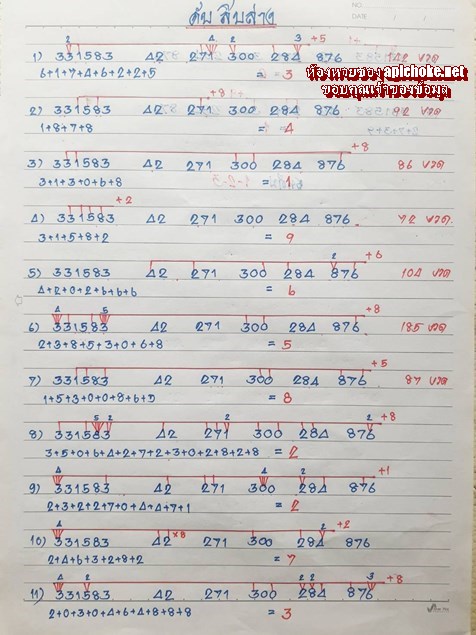 ดับ สิบล่าง
NO.
DATE
2 4 2 3 +5
1) 331583 42 271 300 284 876 142 งวด
6+1+7+4+6+2+2+5 = 3
ห้องหวยซองaplchoke.net
ขอบคุณเจ้าของข้อมูล
+8 +1
2) 331583 42 271 300 284 876 92 งวด
1+8+7+8 = 4
+8
3) 331583 42 271 300 284 876 86 งวด
3+1+3+0+6+8 = 1
+2
4) 331583 42 271 300 284 876 92 งวด
3+1+5+8+2 = 9
2 +6
5) 331583 42 271 300 284 876 104 งวด
4+2+0+2+6+6+6 = 6
4 5 +8
6) 331583 42 271 300 284 876 185 งวด
2+3+8+5+3+0+6+8 = 5
+5
7) 331583 42 271 300 284 876 87 งวด
1+5+3+0+0+8+6+5 = 8
5 2 2 2 +8
8) 331583 42 271 300 284 876
3+5+0+6+4+2+7+2+3+0+2+8+2+8 = 2
4 4 2 +1
9) 331583 42 271 300 284 876
2+3+2+2+7+0+4+4+7+1 = 2
4 ×8 2 +2
10) 331583 42 271 300 284 876
2+4+6+3+2+8+2 = 7
4 2 2 2 3 +8
11) 331583 42 271 300 284 876
2+0+3+0+4+6+4+8+8+8 = 3